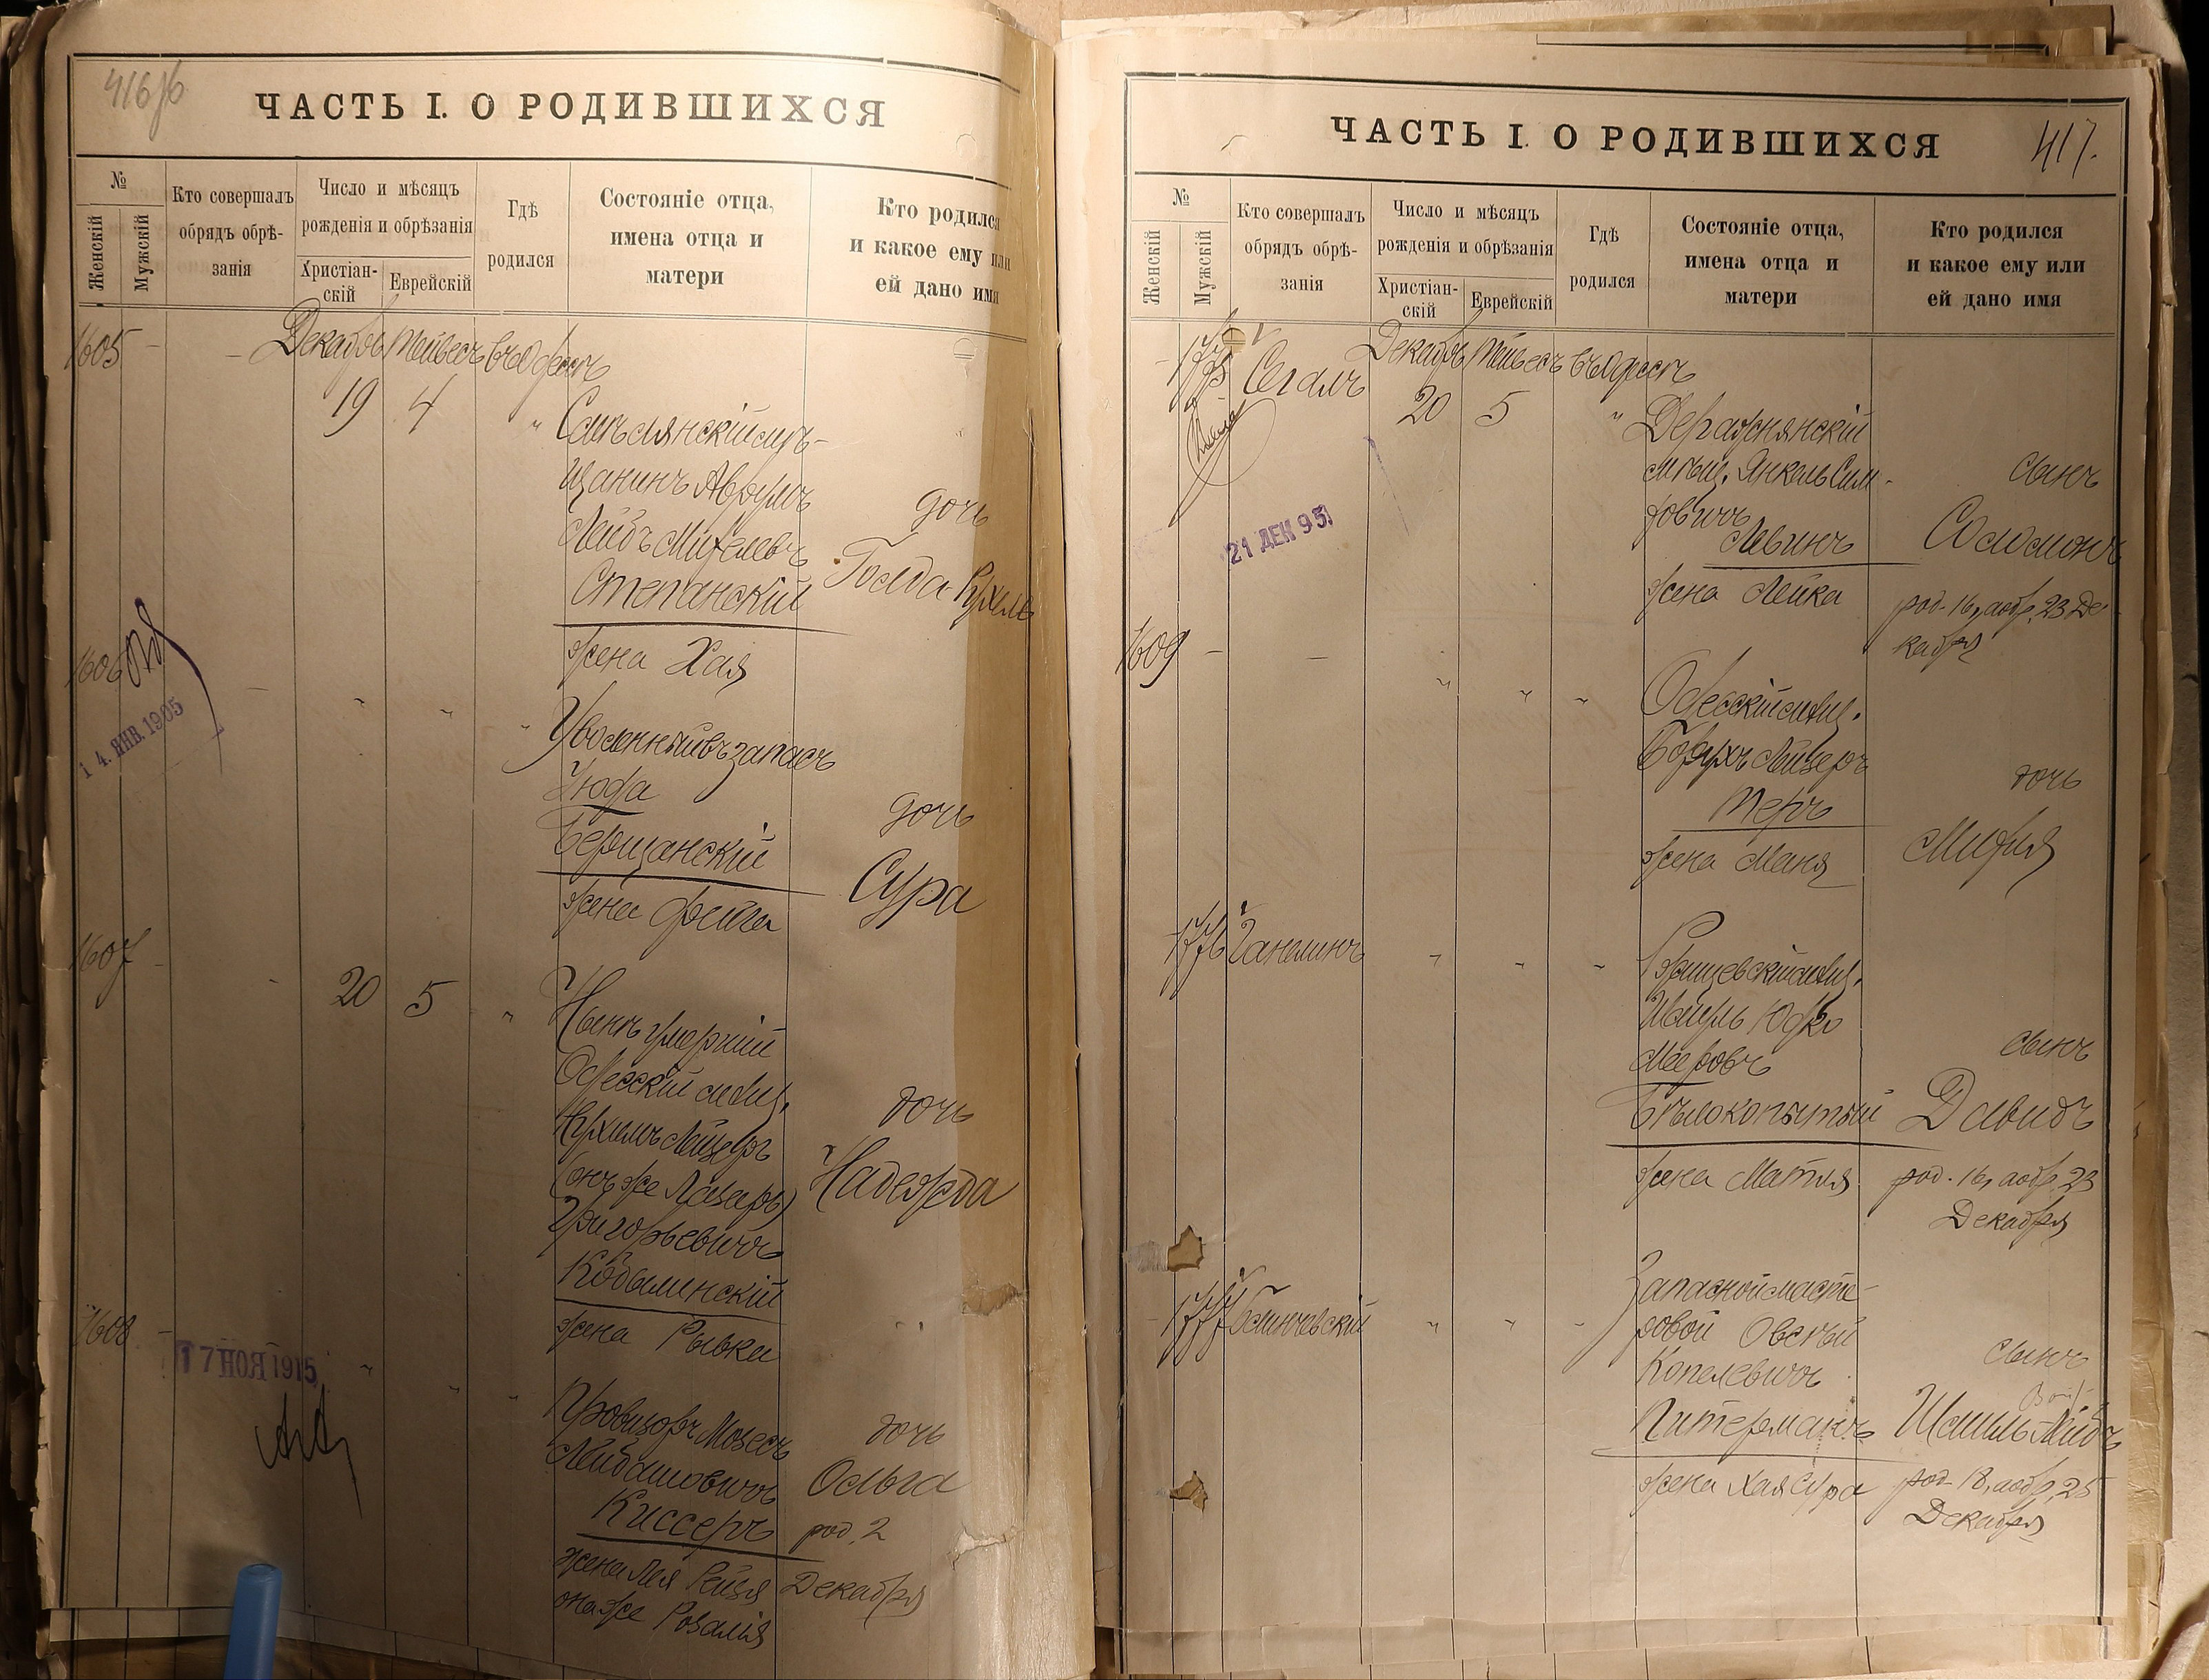 416об
ЧАСТЬ I. О РОДИВШИХСЯ
№
Женскій
Мужскій
Кто совершалъ
обрядъ обрѣ-
занія
Число и мѣсяцъ
рожденія и обрѣзанія
Христіан-
скій
Еврейскій
Гдѣ
родился
Состояніе отца,
имена отца и
матери
Кто родился
и какое ему или
ей дано имя
1605 - - Декабрь Тейвесъ въ Одессѣ
19 4 "
мѣ-
щанинъ Аврумъ
Лейбъ
Степанскій
жена Хая
дочь
Голда-Рухель
1606 - " " "
14. ЯНВ. 1905
Уволенный въ запасъ
Іюда
Берщанскій
жена Фейга
дочь
Сура
1607 - - 20 5 "
Нынѣ умершій
Одесскій мѣщ.
Лейзеръ
(онъ же Лазарь)
Григорьевичъ
Кобылинскій
жена Рывка
дочь
Надежда
1608 - - " " "
17 НОЯ 1915
Провизоръ Мозесъ
Лейбашовичъ
Киссеръ
жена Лея Рейзя
она же Розалія
дочь
Ольга
род. 2
Декабря
ЧАСТЬ I. О РОДИВШИХСЯ
417.
№
Женскій
Мужскій
Кто совершалъ
обрядъ обрѣ-
занія
Число и мѣсяцъ
рожденія и обрѣзанія
Христіан-
скій
Еврейскій
Гдѣ
родился
Состояніе отца,
имена отца и
матери
Кто родился
и какое ему или
ей дано имя
- 1775 Сегалъ Декабрь Тейвесъ въ Одессѣ
20 5 "
21 ДЕК 95
Деражнянскій
мѣщ. Янкель Сим-
ховичъ
Левинъ
жена Лейка
сынъ
Соломонъ
род. 16, а обр. 23 Де-
кабря
1609 - - " " "
Одесскій мѣщ.
Борухъ Лейзеръ
Теръ
жена Маня
дочь
Мирля
- 1776 Ганелинъ " " "
мѣщ.
Шмуль Юфко
Мееровъ
Бѣлокопытый
жена Матля
сынъ
Давидъ
род. 16, а обр. 23
Декабря
- 1777 " " "
Запасной масте-
ровой Овсѣй
Копелевичъ
Питерманъ
жена Хая Сура
сынъ
Шмиль Лейбъ
род. 18, а обр. 25
Декабря